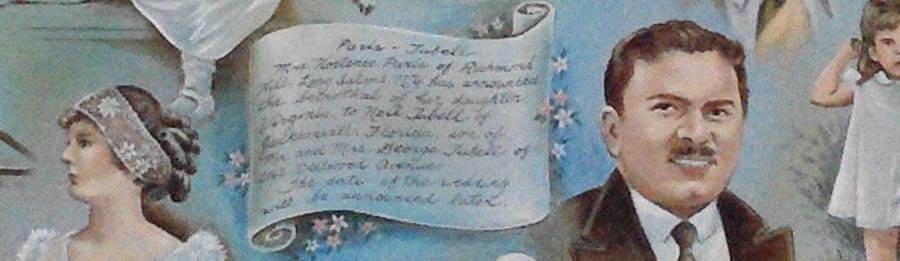 Paris - Tubell
Mrs Hortense Paris of Richmond
Hill Long Island NY has announced
the betrothal of her daughter
Virginia to Neil Tubell of
Jacksonville Florida son of
Mr and Mrs George Tubell of
Avenue
The date of the wedding
will be announced later.